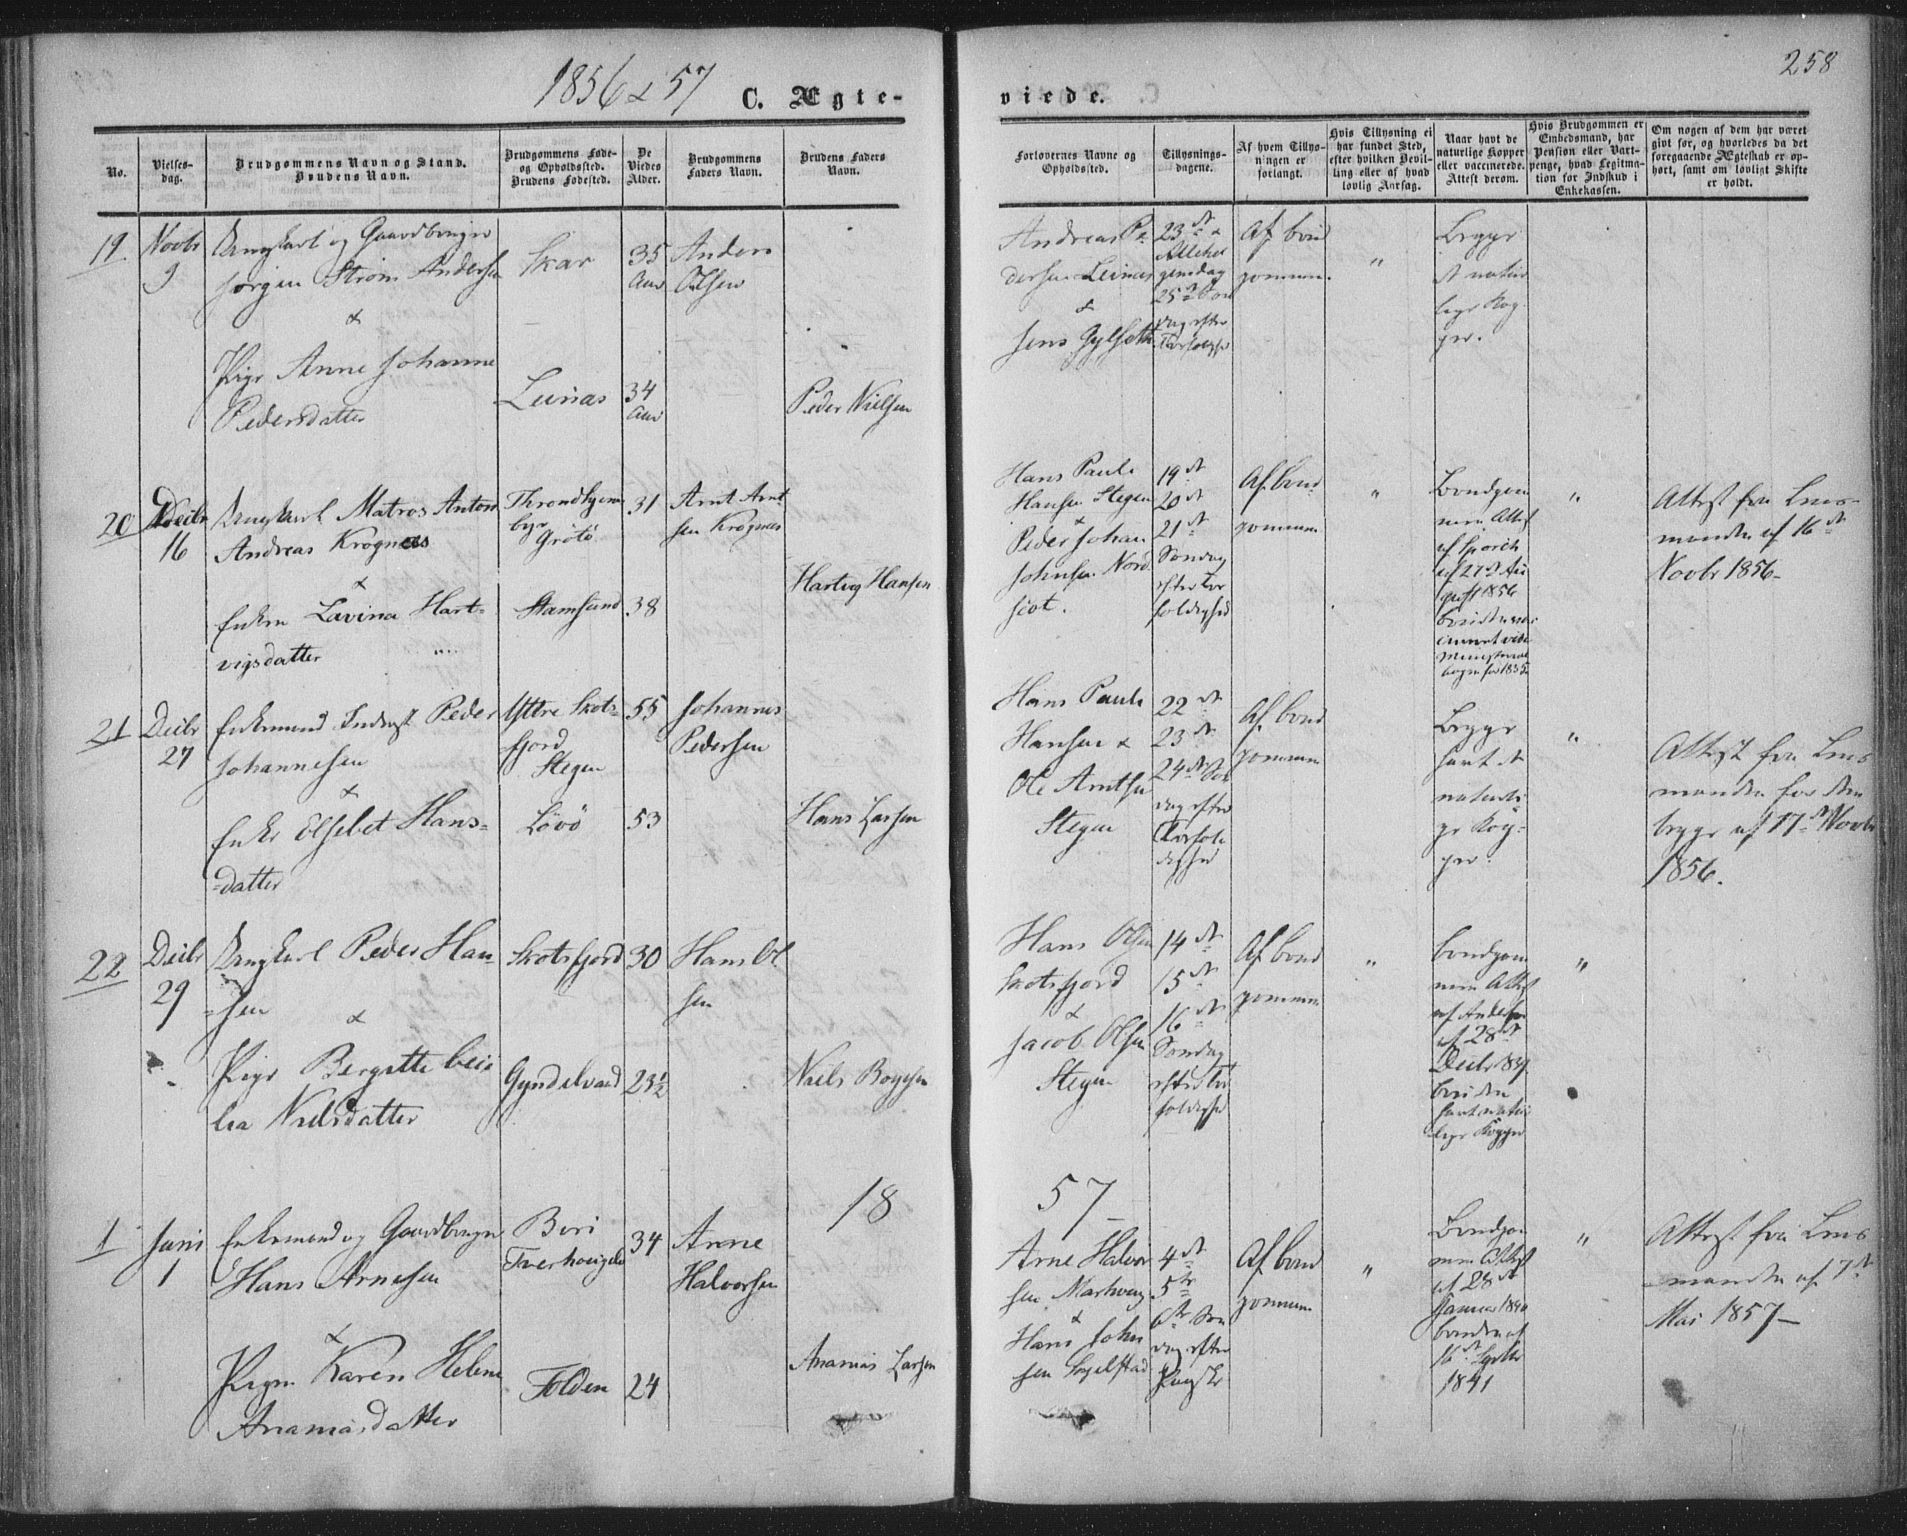 1856 & 57
C. Ægte-
viede.
258
No.
Vielses-
dag.
Brudgommens Navn og Stand.
Brudens Navn.
Brudgommens Føde-
og Opholdssted.
Brudens Fødested.
De
Viedes
Alder.
Brudgommens
Faders Navn.
Brudens Faders
Navn.
Forlovernes Navne og
Opholdssted.
Tillysnings-
dagene.
Af hvem Tillys-
ningen er
forlangt.
Hvis Tillysning ei
har fundet Sted,
efter hvilken Bevil-
ling eller af hvad
lovlig Aarsag.
Naar havt de
naturlige Kopper
eller vaccinerede.
Attest derom.
Hvis Brudgommen er
Embedsmand, har
Pension eller Vart-
penge, hvad Legitima-
tion for Indskud i
Enkekassen.
Om nogen af dem har været
givt før, og hvorledes da det
foregaaende Ægteskab er op-
hørt, samt om lovligt Skifte
er holdt.
19
Novbr
9
Ungkarl og Gaardbruger
Jørgen Strøm Andersen
&
Pige Anne Johanne
Pedersdatter
Skar
Leinæs
35
Aar
34
Aar
Anders
Olsen
Peder Nielsen
Andreas Pe-
dersen Leinæs
&
Jens Gylseth
23de &
Allehel
gensdag
25de Søn
dag efter
Af brud
gommen.
"
Begge
d natur
lige Kop
per.
20
Decbr
16
Ungkarl Matros Anton
Andreas Krognæs
&
Enken Lavina Hart-
vigsdatter
Throndhjems
bye
Grøtø
Stamsund
31
38
Arnt Arnt
sen Krognæs
Hartvig Hansen
Hans Paul
Hansen Stegen
&
Peder Johan
Johnsen Nord
19de
20de
21de
Søndag
efter Tre
foldighed
Af brud
gommen
"
Brudgom
mens Attest
af 27de Au
gust 1856
bruden vac
cineret vide
Ministerial
bogen for 1835
"
Attest fra Lens-
manden af 16de
Novbr 1856-
21
Decbr
27
Enkemand Inderst Peder
Johannesen
&
Enke Elsebet Hans-
datter
Yttre Skots-
fjord
Stegen
Løvø
55
53
Johannes
Pedersen
Hans Larsen
Hans Paul
Hansen &
Ole Arntsen
Stegen
22de
23de
24de Søn
dag efter
Trefol
dighed
Af brud
gommen
Begge
havt de
naturli
ge Kop-
per.
"
Attest fra Lens
manden for dem
begge af 17de Novbr
1856.
22
Decbr
29
Ungkarl Peder Han-
sen
&
Pige Bergitte
Nielsdatter
Skotsfjord
Gyndelvand
30
23½
Hans Ol
sen
Niels Bogesen
Hans Olsen
Skotsfjord
&
Jacob Olsen
Stegen
14de
15de
16de
Søndag
efter Tre
foldighed
Af brud
gommen
"
brudgom
mens Attest
af 28de
Decbr 1839
bruden
havt natur
lige Kopper
"
18
57
1
Juni
1
Enkemand og Gaardbruger
Hans Arnesen
&
Pigen Karen Helene
Ananiasdatter
Folden
34
24
Arne
Halvorsen
Ananias Larsen
Arne Halvor
sen
&
Hans John
sen
4de
5te
6te Søn
dag efter
Paaske
Af brud
gommen
"
Brudgom
mens Attest
af 28de
Januar 1840
bruden af
16de Septbr
1841
"
Attest fra Lens
manden af 7de
Mai 1857-